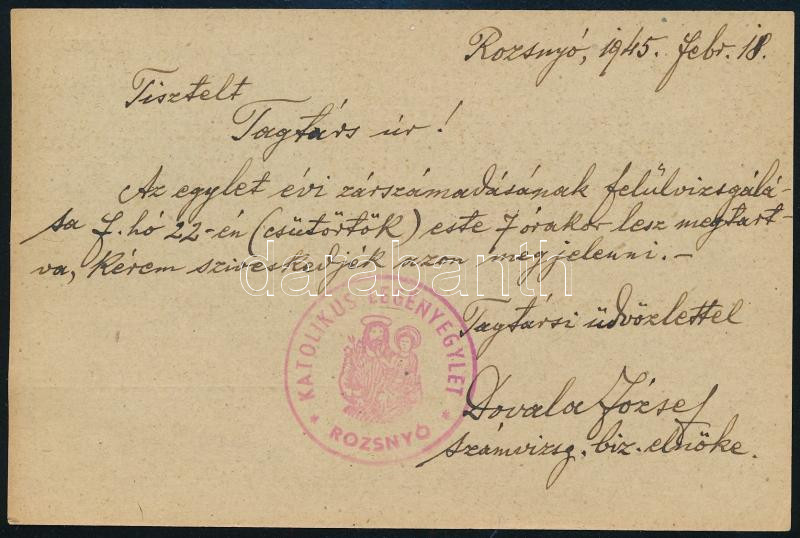 Rozsnyó, 1945. febr. 18.
Tisztelt
Tagtárs úr!
Az egylet évi zárszámadásának felülvizsgálá-
sa f. hó 22-én (csütörtök) este 7 órakor lesz megtart-
va, kérem sziveskedjék azon megjelenni. -
darabanth
Tagtársi üdvözlettel
KATOLIKUS LEGÉNYEGYLET
* ROZSNYÓ *
Dovala József
számvizsg. biz. elnöke.